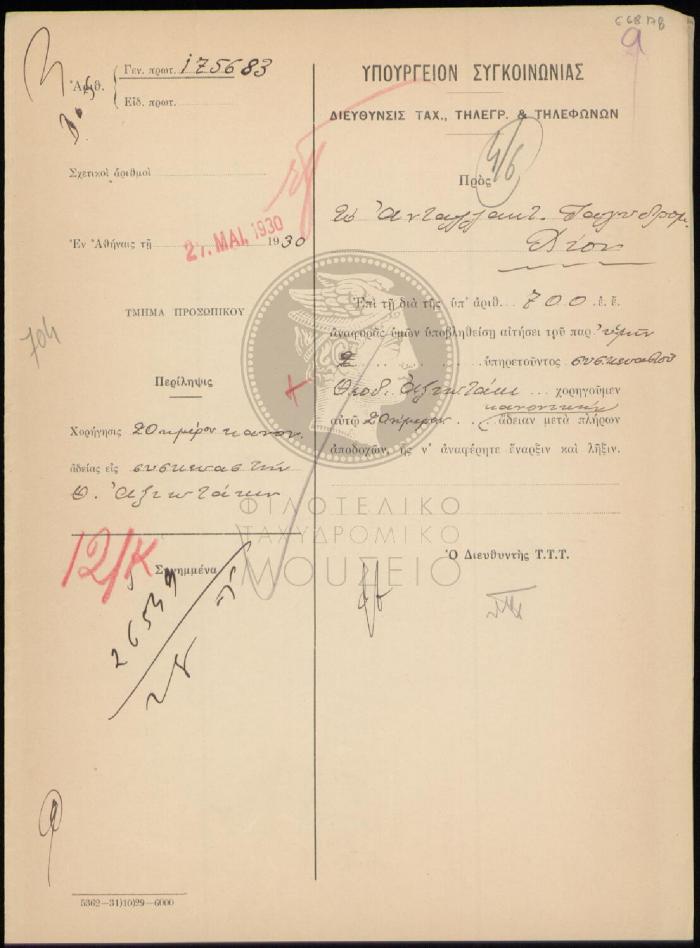 668178
9
Ἀριθ.
Γεν. πρωτ. 175683
Εἰδ. πρωτ.
Σχετικοὶ ἀριθμοὶ
27. ΜΑΪ. 1930
Ἐν Ἀθήναις τῇ 1930
704
ΤΜΗΜΑ ΠΡΟΣΩΠΙΚΟΥ
Περίληψις
Χορήγησις 20ημέρου κανον.
ἀδείας εἰς συσκευαστὴν
Θ. Ἀξιωτάκην
12/Κ
Συνημμένα
26549
28
5362—31)10)29—6000
ΥΠΟΥΡΓΕΙΟΝ ΣΥΓΚΟΙΝΩΝΙΑΣ
ΔΙΕΥΘΥΝΣΙΣ ΤΑΧ., ΤΗΛΕΓΡ. & ΤΗΛΕΦΩΝΩΝ
4/6
Πρὸς
τὸ Ἀνταλλακτ. Ταχυδρομ.
Χίον
Ἐπὶ τῇ διὰ τῆς ὑπ' ἀριθ. 700 ἐ. ἔ.
ἀναφορᾶς ὑμῶν ὑποβληθείσῃ αἰτήσει τοῦ παρ' ὑμῖν
ὑπηρετοῦντος συσκευαστοῦ
Θεοδ. Ἀξιωτάκη χορηγοῦμεν
κανονικὴν
αὐτῷ 20ήμερον ἄδειαν μετὰ πλήρων
ἀποδοχῶν, ἧς ν' ἀναφέρητε ἔναρξιν καὶ λῆξιν.
ΦΙΛΟΤΕΛΙΚΟ
ΤΑΧΥΔΡΟΜΙΚΟ
ΜΟΥΣΕΙΟ
Ὁ Διευθυντὴς Τ.Τ.Τ.